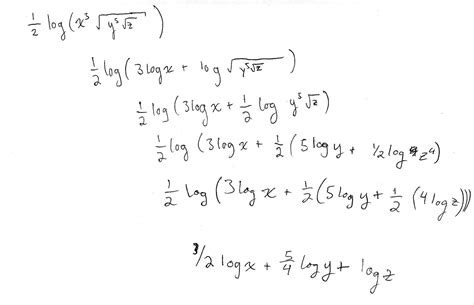 ½ log(x³ √(y⁵√z))
½ log(3logx + log √(y⁵√z))
½ log(3logx + ½ log y⁵√z)
½ log(3logx + ½(5logy + ½log z⁴)
½ log(3logx + ½(5logy + ½ (4logz)))
3/2 logx + 5/4 logy + logz